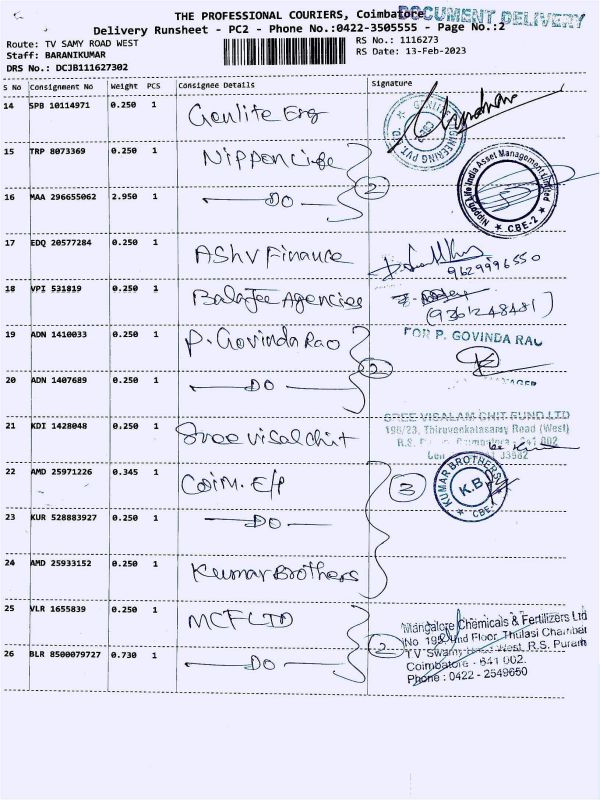 THE PROFESSIONAL COURIERS, Coimbatore
DOCUMENT DELIVERY
Delivery Runsheet - PC2 - Phone No.:0422-3505555 - Page No.:2
Route: TV SAMY ROAD WEST
RS No.: 1116273
Staff: BARANIKUMAR
RS Date: 13-Feb-2023
DRS No.: DCJB111627302
S No Consignment No Weight PCS Consignee Details Signature
14 SPB 10114971 0.250 1 Genlite Eng
15 TRP 8073369 0.250 1 Nippon Life
Nippon Life India Asset Management Limited
★ CBE-2 ★
16 MAA 296655062 2.950 1 DO 2
17 EDQ 20577284 0.250 1 Ashv Finance
9629996550
18 VPI 531819 0.250 1 Balajee Agencies
(9361248481)
19 ADN 1410033 0.250 1 P. Govinda Rao
FOR P. GOVINDA RAO
20 ADN 1407689 0.250 1 DO 2
21 KDI 1428048 0.250 1 Sree visal chit
SREE VISALAM CHIT FUND LTD
198/23, Thiruvenkatasamy Road (West)
22 AMD 25971226 0.345 1 Coim. E/P 3
KUMAR BROTHERS
K.B
CBE
23 KUR 528883927 0.250 1 DO
24 AMD 25933152 0.250 1 Kumar Brothers
25 VLR 1655839 0.250 1 MCF LTD
Mangalore Chemicals & Fertilizers Ltd
26 BLR 8500079727 0.730 1 DO 2
Floor, Thulasi Chamber
West, R.S. Puram
Coimbatore - 641 002.
Phone : 0422 - 2549650